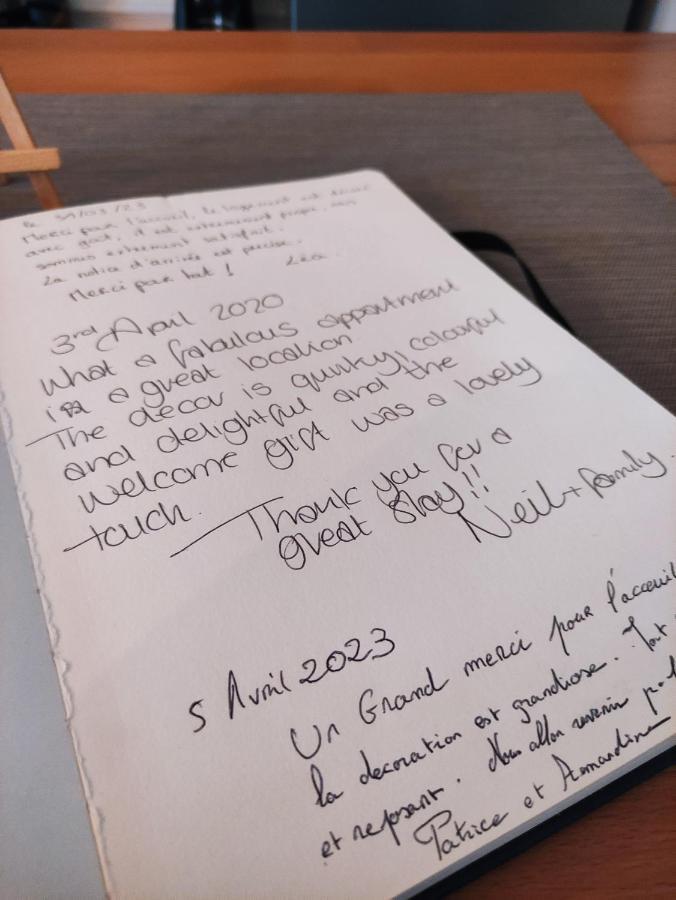 le 31/03/23
Merci pour l'accueil, le logement est décoré
avec goût, il est extrêmement propre. nous
sommes extrêment satisfait.
La notice d'arrivée est précise.
Merci par tout ! Léa.
3rd April 2020
What a fabulous appartment
in a great location.
The decor is quirky, colourful
and delightful and the
welcome gift was a lovely
touch.
Thank you for a
great stay!!
Neil + family.
5 Avril 2023
Un Grand merci pour l'acceuil
la decoration est grandiose. Tout
et reposant. Nous allon revenir
Patrice et Amandine